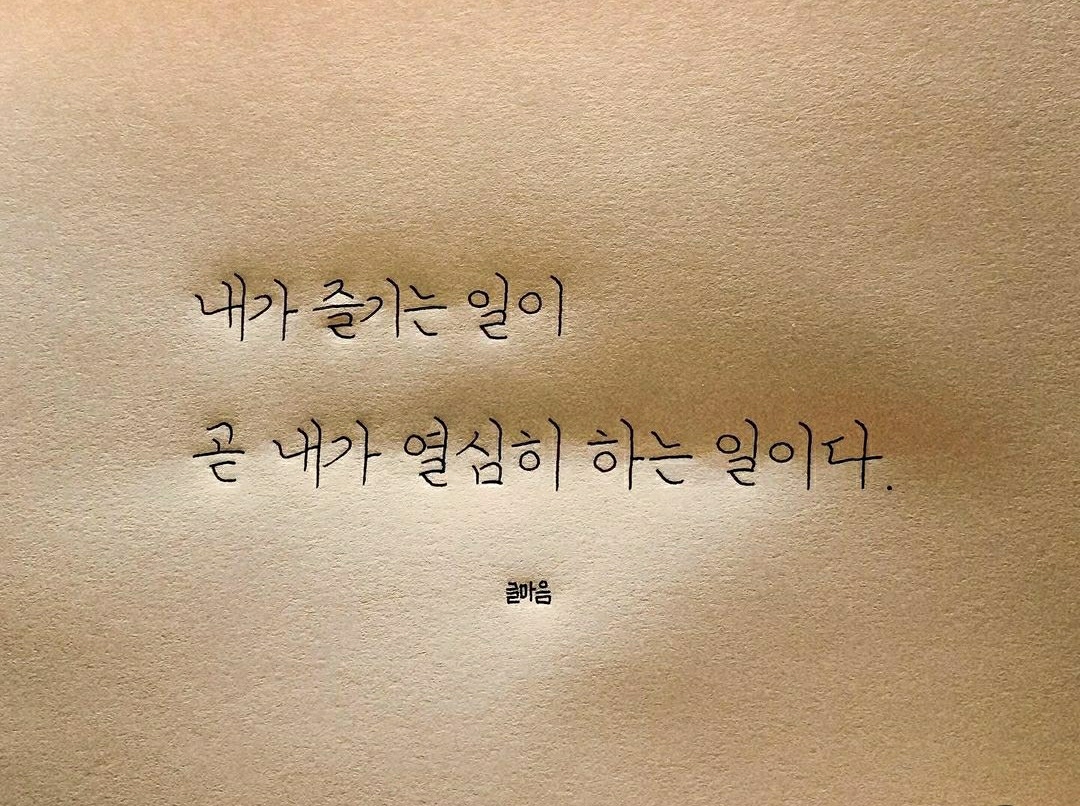 내가 즐기는 일이
곧 내가 열심히 하는 일이다.
글마음